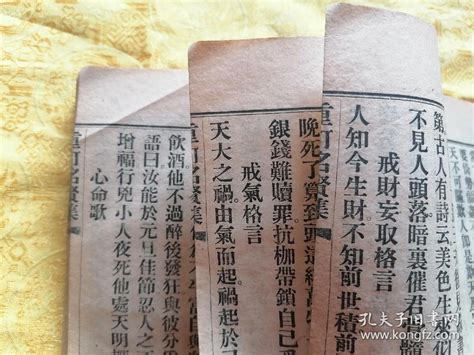 古人有詩云美色生成
不見人頭落暗裏催君骨
戒財妄取格言
人知今生財不知前世積前
重訂名賢集
晚死了算到頭
銀錢難贖罪抗枷帶鎖自己
戒氣格言
天大之禍由氣而起禍起於
重訂名賢集
飲酒他不過醉後發狂與彼分
語曰汝能於元旦佳節忍人之
增福行兇小人夜死他處天明
心命歌
重訂名賢集
孔夫子旧书网
www.kongfz.com